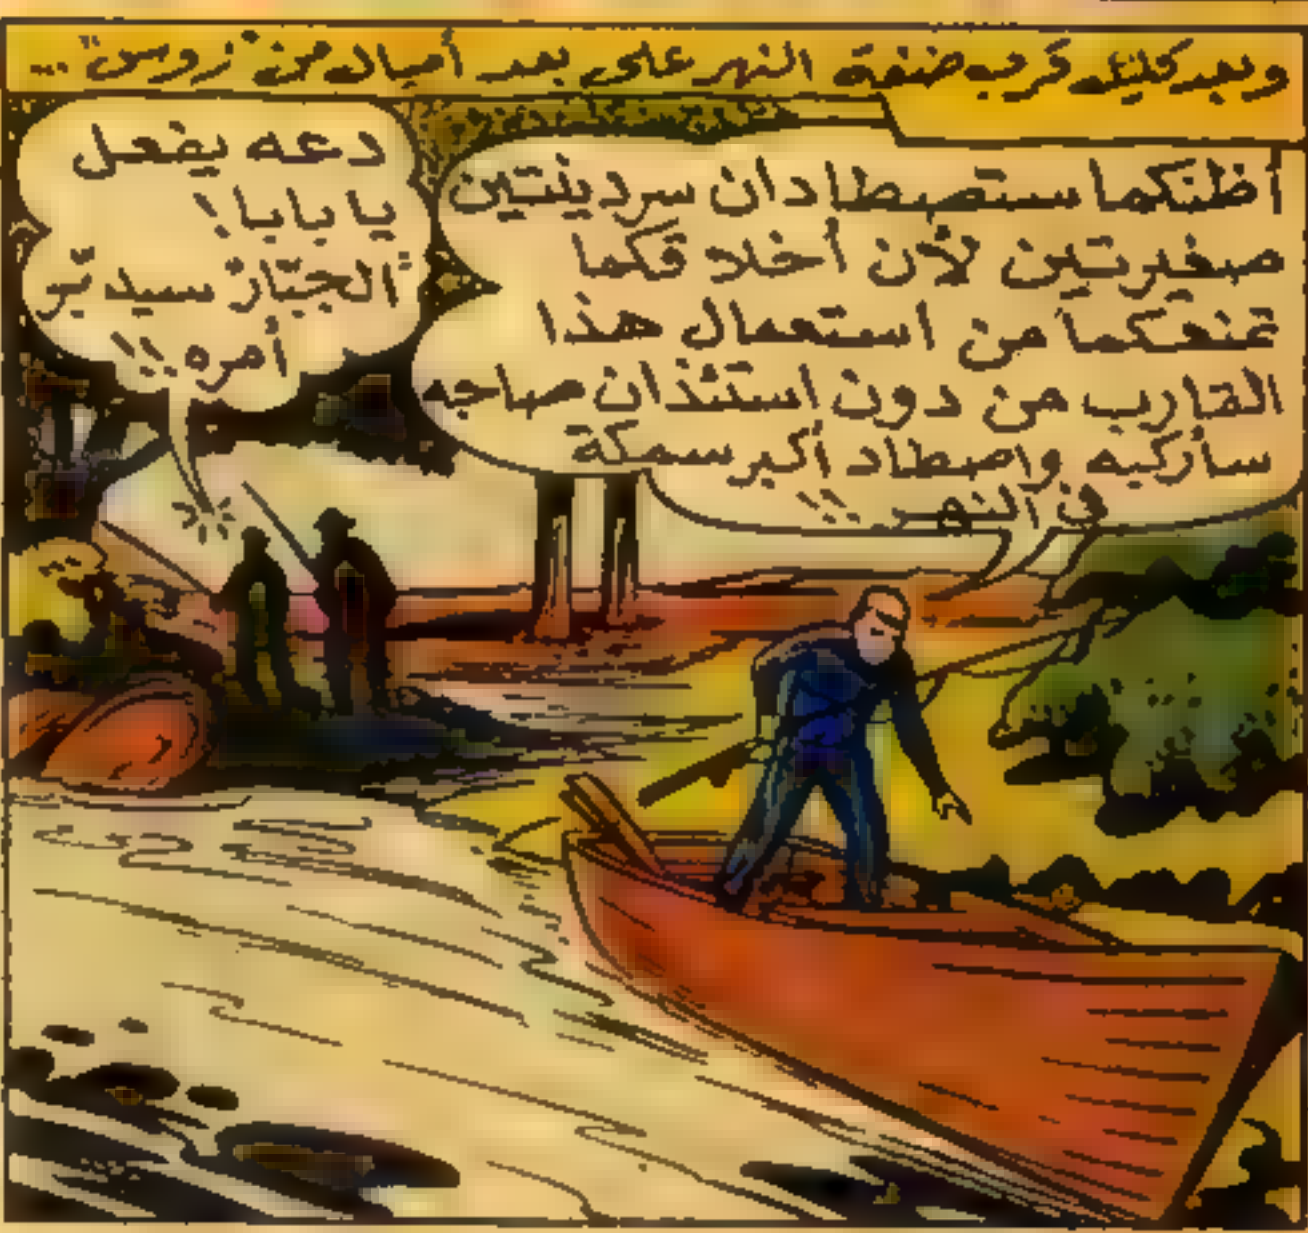 وبعد كليك قرب ضفة النهر على بعد أميال من "زوس" ...
أظنكما ستصطادان سردينتين
صغيرتين لأن أخلاقكما
تمنعكما من استعمال هذا
القارب من دون استئذان صاحبه
سأركبه واصطاد أكبر سمكة
في النهر !!
دعه يفعل
يا بابا !
"الجبّار" سيدبّر
أمره !!